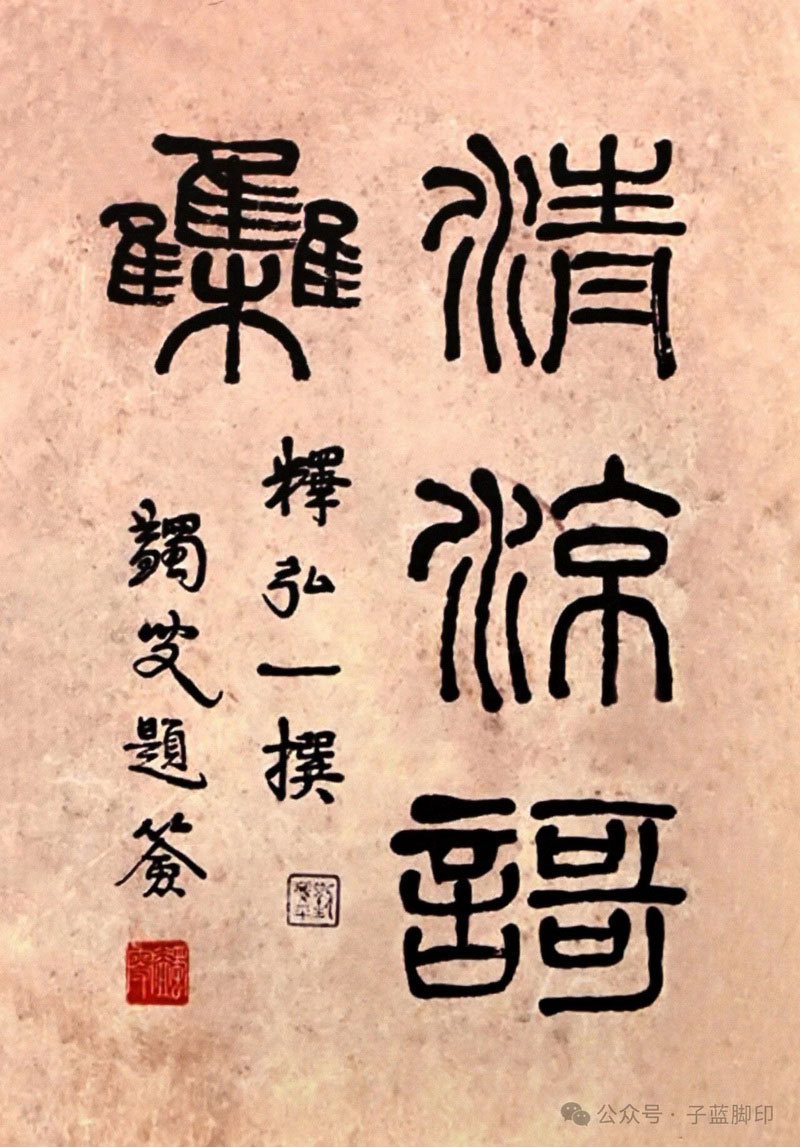 清涼謌
雧
釋弘一撰
蠲叟題簽
公众号 · 子蓝脚印